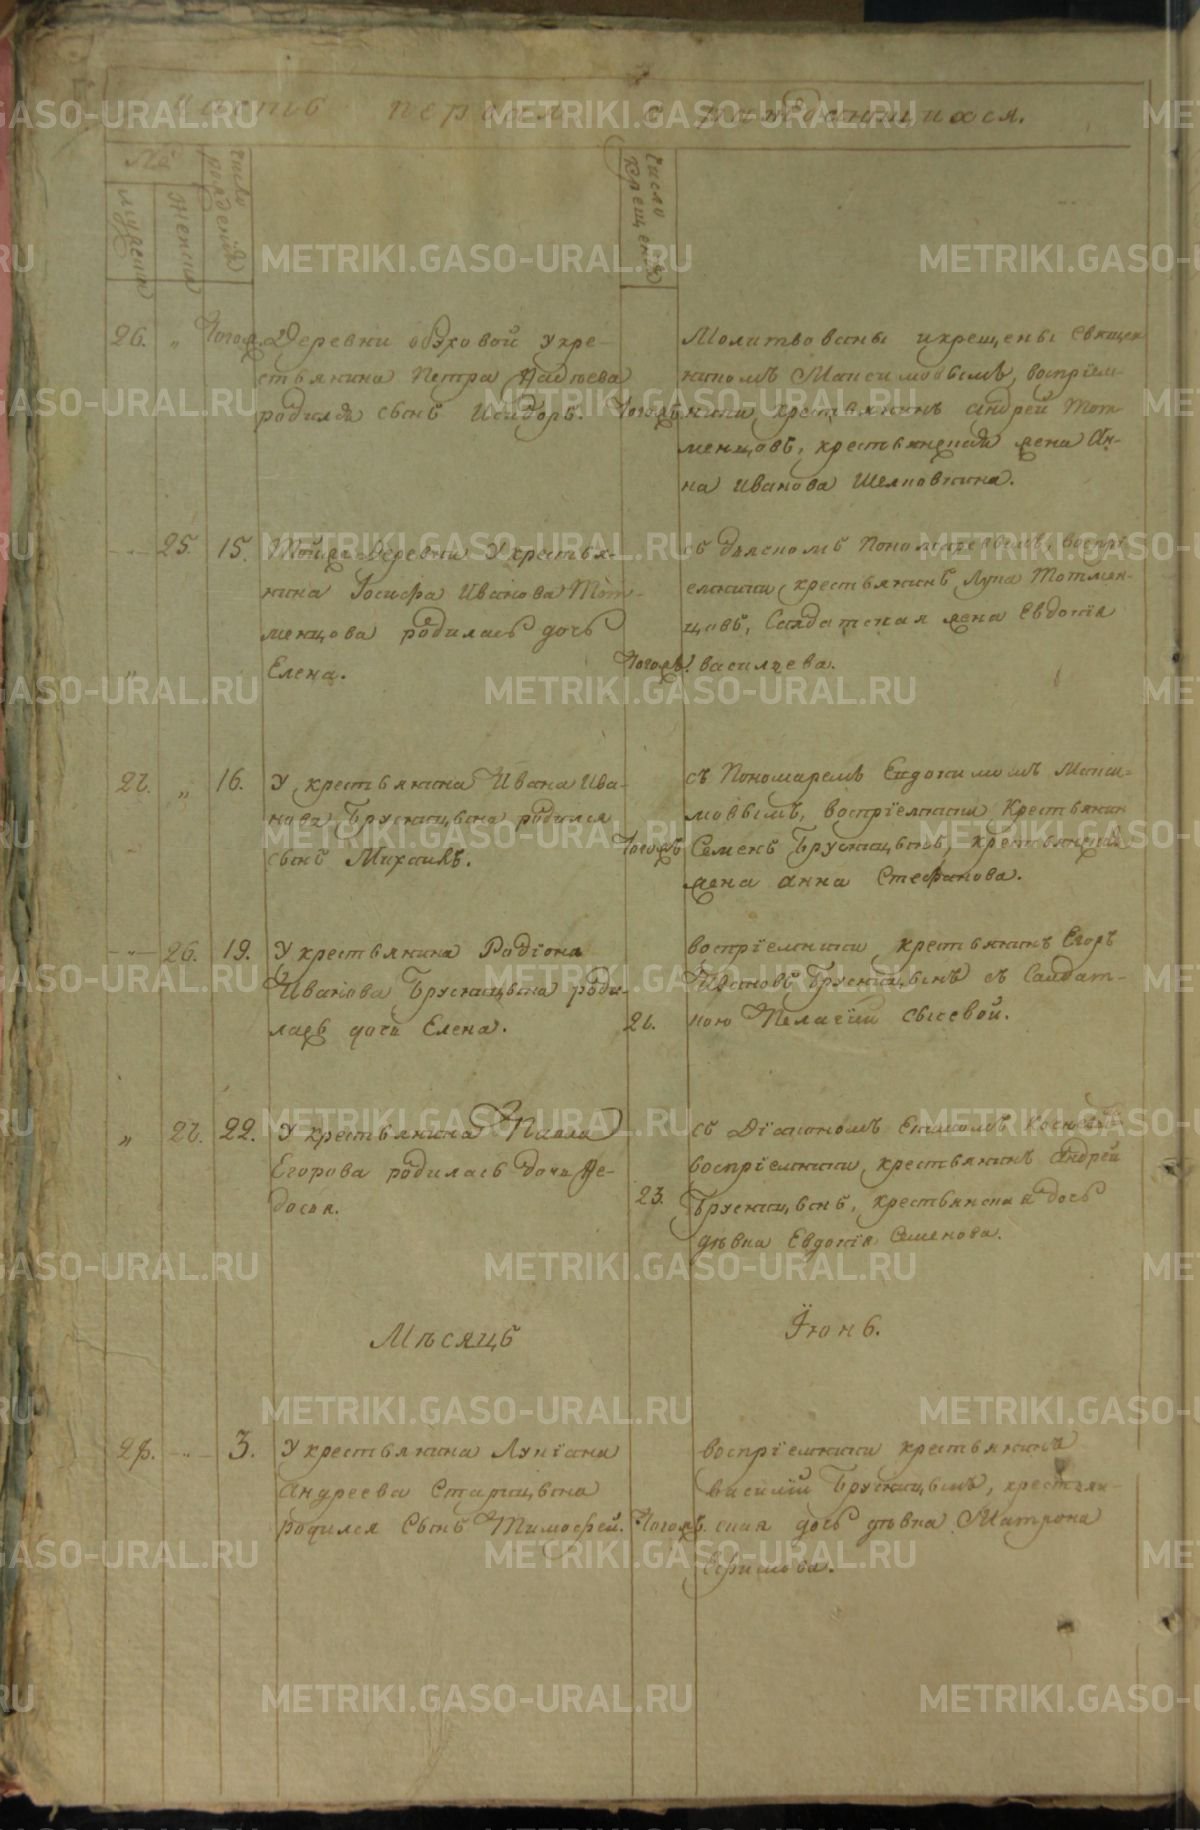 Часть первая о раждающихся.
№
мужеска
женска
число рожденія
число крещенія
26. „ Тогожъ. Деревни обуховой у кре-
стьянина Петра
родился сынъ Исидоръ. Тогожъ
Молитвованы и крещены Священ
никомъ Максимовымъ, воспріем-
ники крестьянинъ андрей Тот-
менцовъ, крестьянская жена Ан-
на Иванова Шелковкина.
„ 25 15. Тойже Деревни У крестья-
нина Іосифа Иванова Тот-
менцова родилась дочь
Елена. Тогожъ.
съ дьячкомъ Пономаревымъ, воспрі-
емники крестьянинъ Лука Тотмен-
цовъ, Салдатская жена Евдокія
василиева.
27. „ 16. У крестьянина Ивана Ива-
нова Брусницына родился
сынъ Михаилъ. Тогожъ
съ Пономаремъ Евдокимомъ Макси-
мовымъ, воспріемники Крестьянин
Семенъ Брусницынъ, крестьянская
жена анна Стефанова.
„ 26. 19. У крестьянина Радіона
Иванова Брусницына роди-
лась дочь Елена. 21.
воспріемники крестьянинъ Егоръ
Ивановъ Брусницынъ съ Салдат-
кою Пелагіи Сысевой.
„ 27. 22. У крестьянина Павла
Егорова родилась дочь Ѳе-
досья. 23.
съ Діакономъ
воспріемники, крестьянинъ андрей
Брусницынъ, крестьянская дочь
дѣвка Евдокія Семенова.
Мѣсяцъ Іюнь.
28. „ 3. У крестьянина Лукіана
андреева Старицына
родился Сынъ Тимофей. Тогожъ.
воспріемники крестьянинъ
василій Брусницынъ, крестьян-
ская дочь дѣвка Матрона
Ефимова.
METRIKI.GASO-URAL.RU